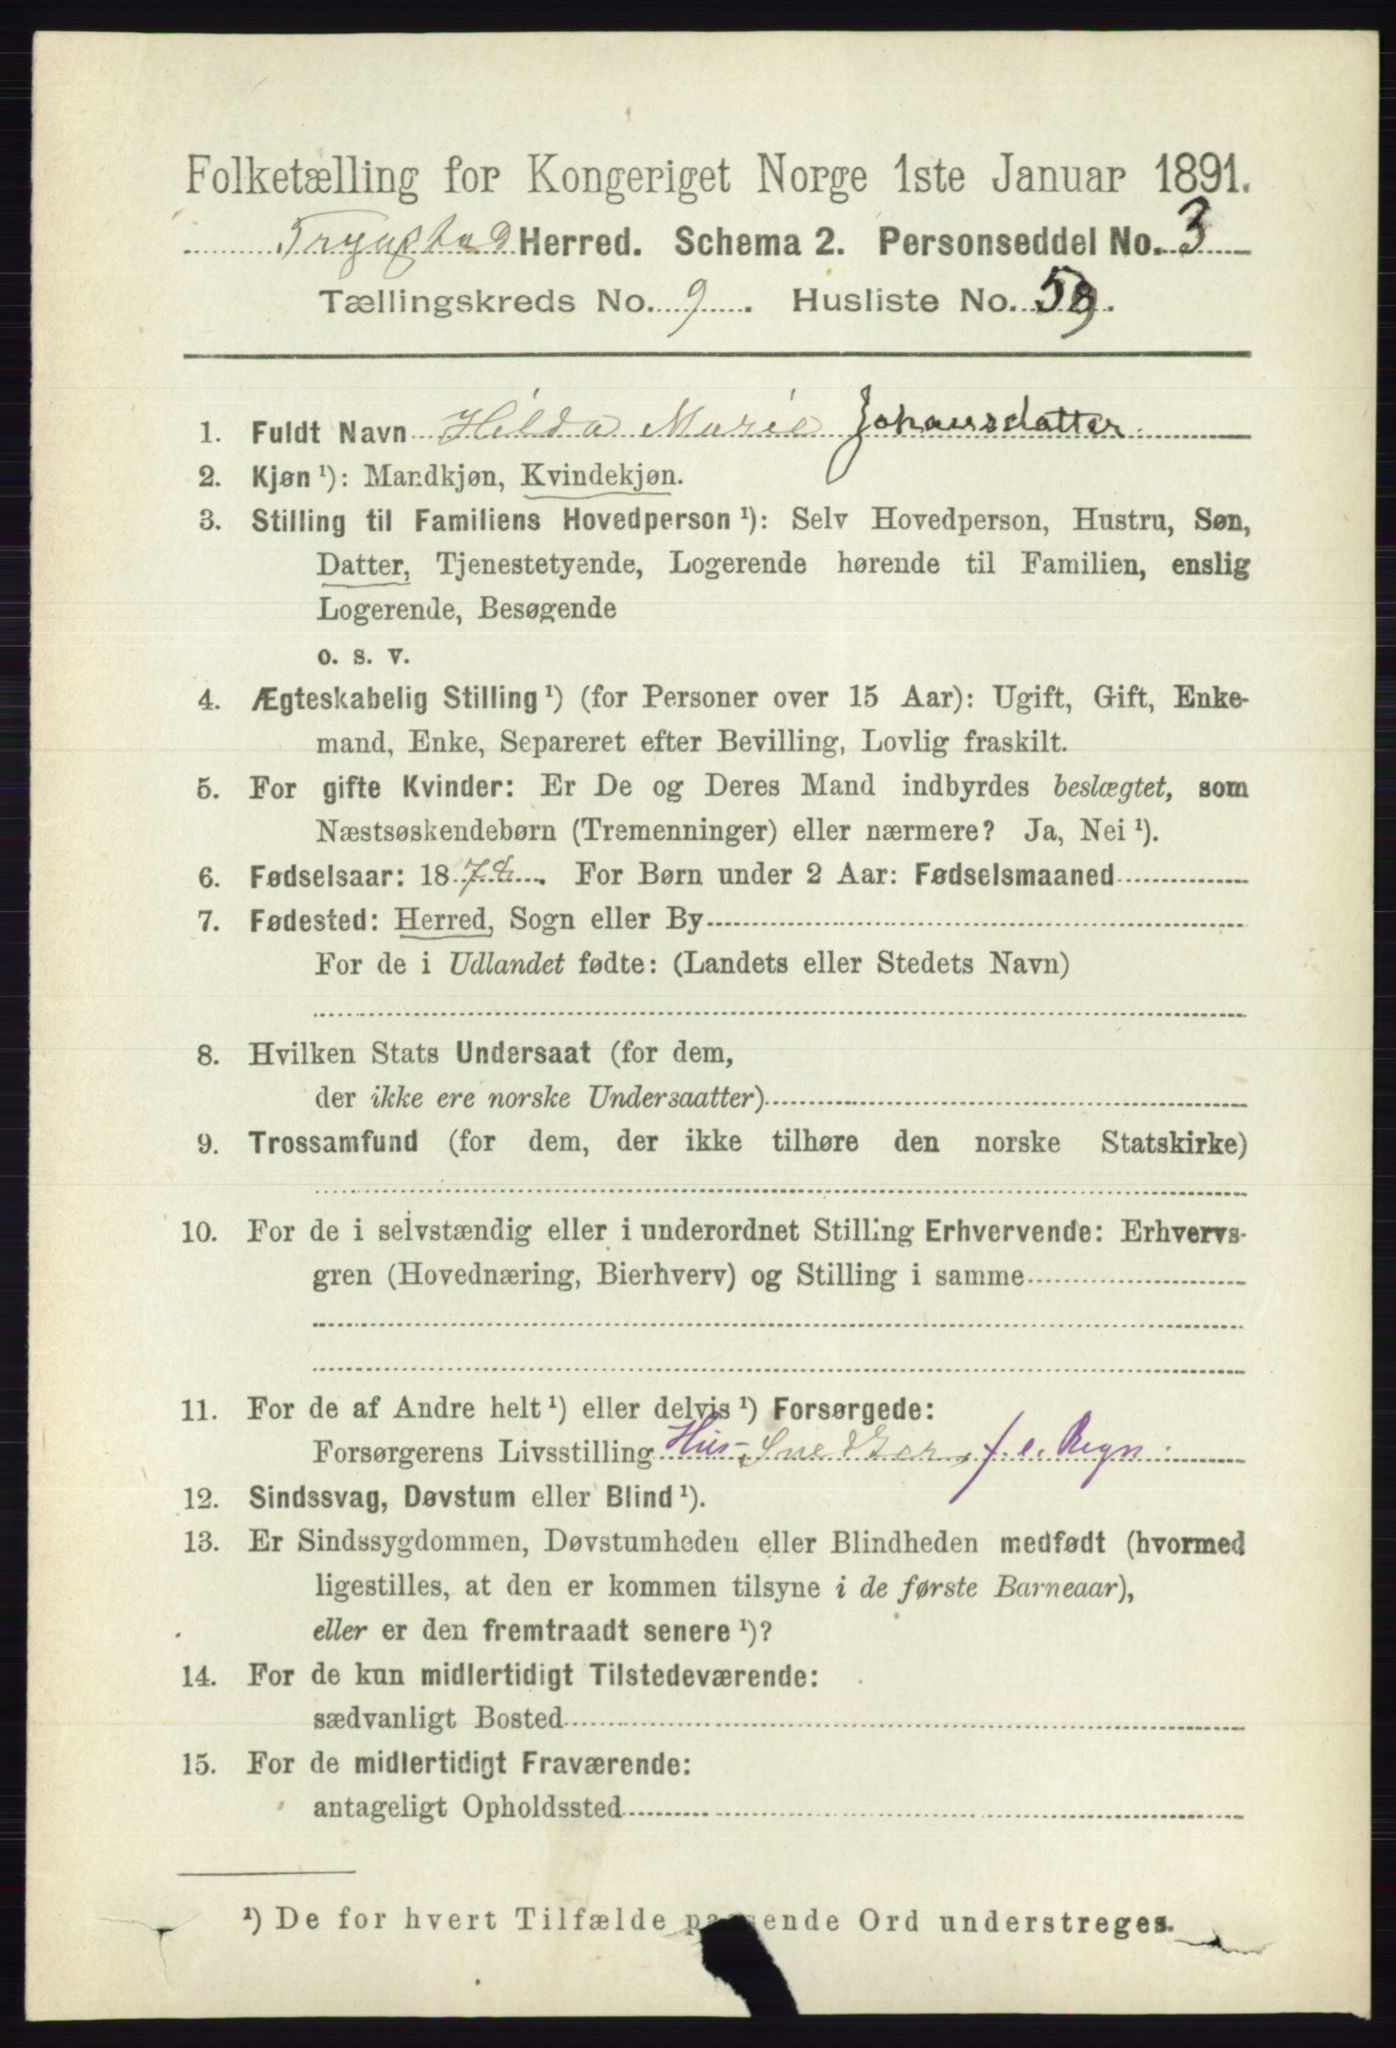 Folketælling for Kongeriget Norge 1ste Januar 1891.
Trygstad Herred. Schema 2. Personseddel No. 3
Tællingskreds No. 9. Husliste No. 59.
1. Fuldt Navn Hilda Marie Johansdatter
2. Kjøn ¹): Mandkjøn, Kvindekjøn.
3. Stilling til Familiens Hovedperson ¹): Selv Hovedperson, Hustru, Søn,
Datter, Tjenestetyende, Logerende hørende til Familien, enslig
Logerende, Besøgende
o. s. v.
4. Ægteskabelig Stilling ¹) (for Personer over 15 Aar): Ugift, Gift, Enke-
mand, Enke, Separeret efter Bevilling, Lovlig fraskilt.
5. For gifte Kvinder: Er De og Deres Mand indbyrdes beslægtet, som
Næstsøskendebørn (Tremenninger) eller nærmere? Ja, Nei ¹).
6. Fødselsaar: 1878. For Børn under 2 Aar: Fødselsmaaned
7. Fødested: Herred, Sogn eller By
For de i Udlandet fødte: (Landets eller Stedets Navn)
8. Hvilken Stats Undersaat (for dem,
der ikke ere norske Undersaatter)
9. Trossamfund (for dem, der ikke tilhøre den norske Statskirke)
10. For de i selvstændig eller i underordnet Stilling Erhvervende: Erhvervs-
gren (Hovednæring, Bierhverv) og Stilling i samme
11. For de af Andre helt ¹) eller delvis ¹) Forsørgede:
Forsørgerens Livsstilling Hus-Snedker f. e. Regn.
12. Sindssvag, Døvstum eller Blind ¹).
13. Er Sindssygdommen, Døvstumheden eller Blindheden medfødt (hvormed
ligestilles, at den er kommen tilsyne i de første Barneaar),
eller er den fremtraadt senere ¹)?
14. For de kun midlertidigt Tilstedeværende:
sædvanligt Bosted
15. For de midlertidigt Fraværende:
antageligt Opholdssted
¹) De for hvert Tilfælde passende Ord understreges.